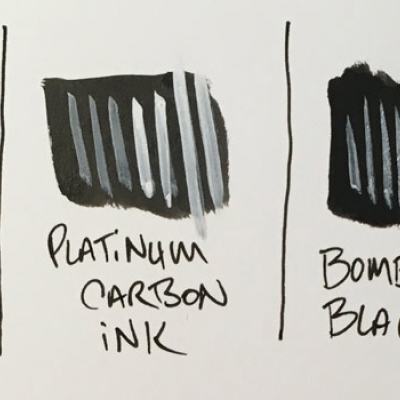 PLATINUM
CARBON
INK
BOMB
BLA